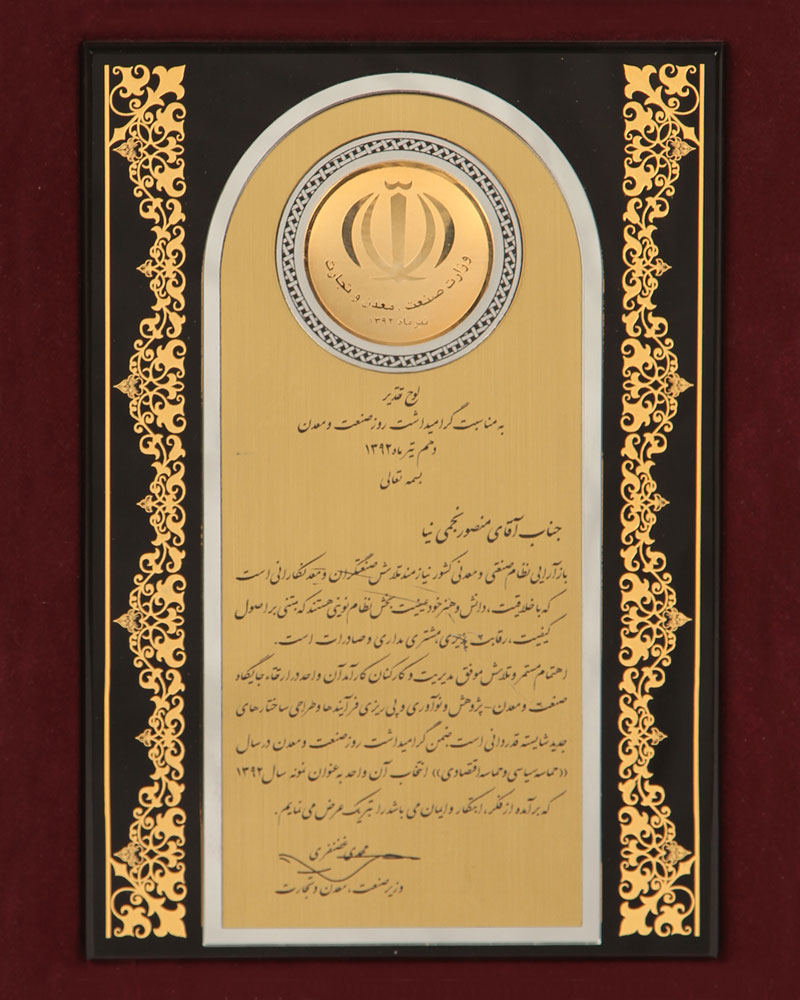 وزارت صنعت، معدن و تجارت
تیر ماه ۱۳۹۲
لوح تقدیر
به مناسبت گرامیداشت روز صنعت و معدن
دهم تیر ماه ۱۳۹۲
بسمه تعالی
جناب آقای منصور نجمی نیا
باز آرایی نظام صنعتی و معدنی کشور نیازمند تلاش صنعتگران و معدنکارانی است
که با خلاقیت، دانش و هنر خود عینیت بخش نظام نوینی هستند که مبتنی بر اصول
کیفیت، رقابت پذیری، مشتری مداری و صادرات است.
اهتمام مستمر و تلاش موفق مدیریت و کارکنان کارآمد آن واحد در ارتقاء جایگاه
صنعت و معدن - پژوهش و نوآوری و پی ریزی فرآیندها و طراحی ساختارهای
جدید شایسته قدردانی است. ضمن گرامیداشت روز صنعت و معدن در سال
«حماسه سیاسی و حماسه اقتصادی» انتخاب آن واحد به عنوان نمونه سال ۱۳۹۲
که برآمده از فکر، ابتکار و ایمان می باشد را تبریک عرض می نمایم.
مهدی غضنفری
وزیر صنعت، معدن و تجارت